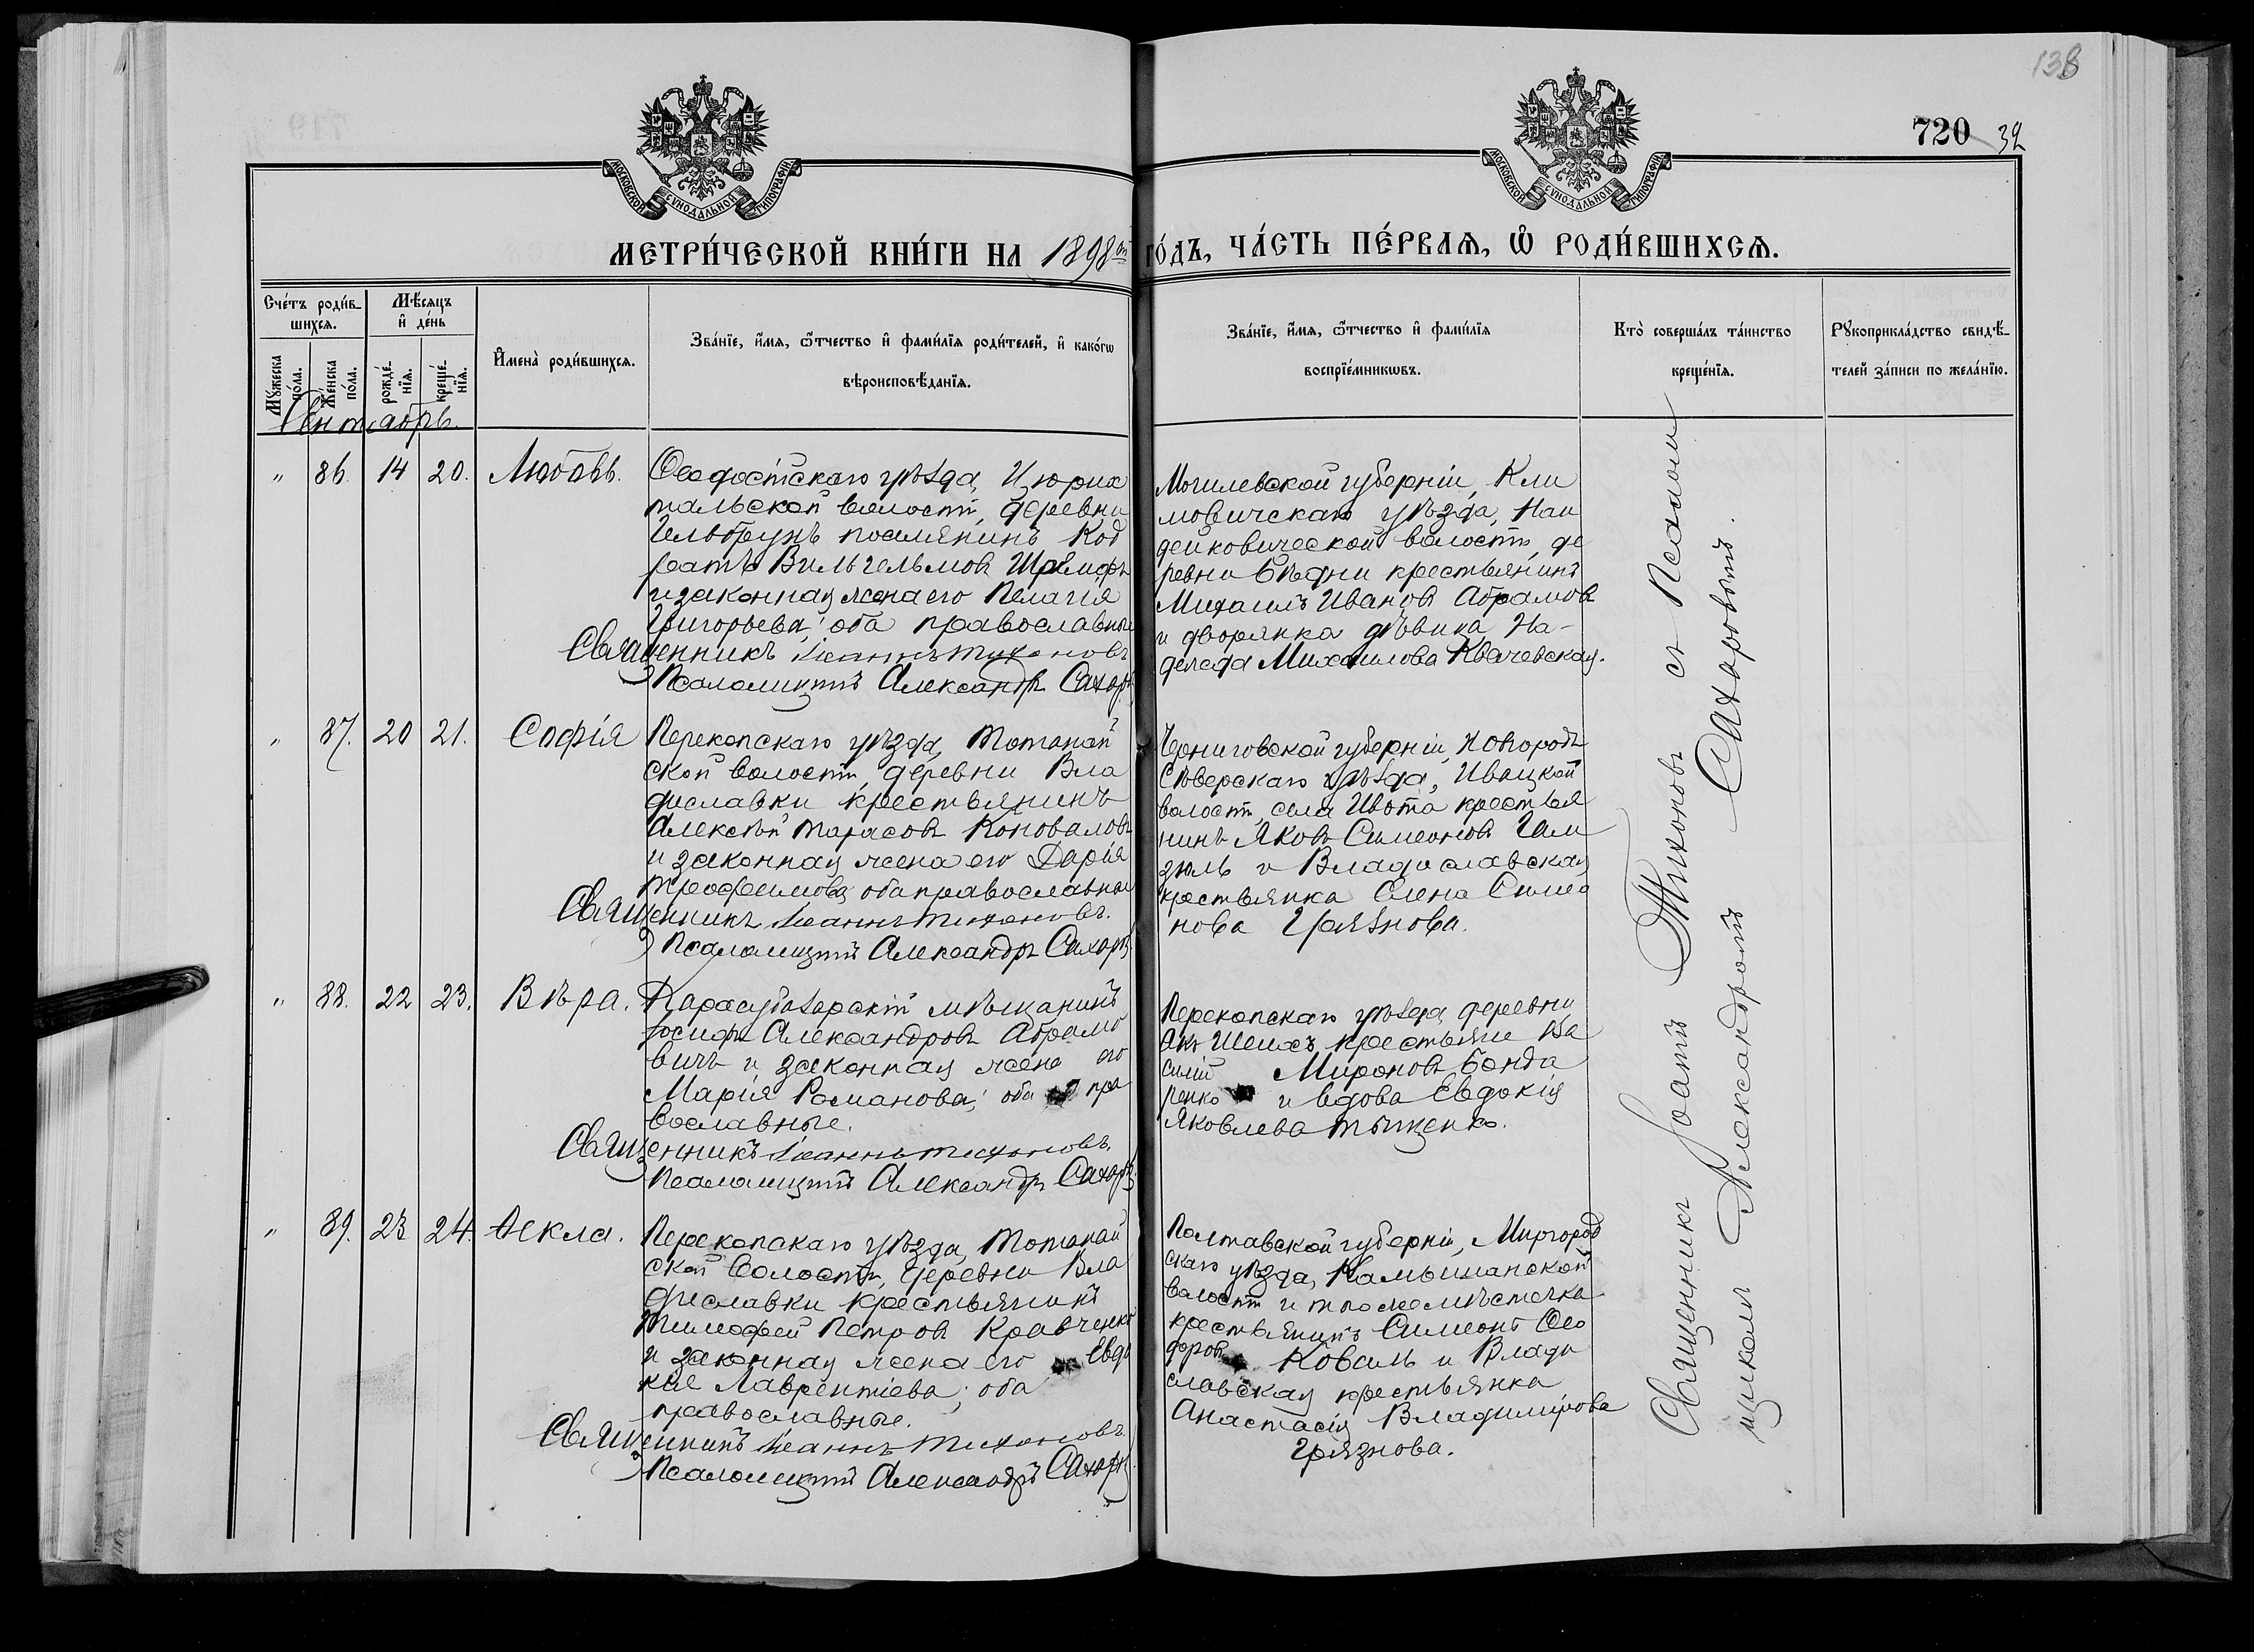 138
720 32
МОСКОВСКОЙ СѴНОДАЛЬНОЙ ТИПОГРАФІИ
МОСКОВСКОЙ СѴНОДАЛЬНОЙ ТИПОГРАФІИ
МЕТРИ́ЧЕСКОЙ КНИ́ГИ НА 1898й ГО́ДЪ, ЧА́СТЬ ПЕ́РВАѦ, Ѡ҆ РОДИ́ВШИХСѦ.
Сче́тъ роди́в-
шихсѧ.
Мꙋ́жеска по́ла.
Же́нска по́ла.
Мѣ́сѧцъ
и҆ де́нь
рожде́-
нїѧ.
креще́-
нїѧ.
И҆мена̀ роди́вшихсѧ.
Зва́нїе, и҆́мѧ, ѻ҆́тчество и҆ фами́лїѧ роди́телей, и҆ како́гѡ
вѣроисповѣ́данїѧ.
Зва́нїе, и҆́мѧ, ѻ҆́тчество и҆ фами́лїѧ
воспрїе́мникѡвъ.
Кто̀ соверша́лъ та́инство
креще́нїѧ.
Рꙋкоприкла́дство свидѣ́-
телей за́писи по жела́нїю.
Сентябрь.
" 86. 14 20. Любовь.
Ѳеодосійскаго уѣзда, Цюрих
тальской волости, деревни
Гельбрунъ поселянинъ Код
ратъ Вильгельмовъ
и законная жена его Пелагія
Григорьева; оба православные
Священникъ Іоаннъ Тихоновъ
Псаломщикъ Александръ Сахаръ
Могилевской губерніи, Кли
мовичскаго уѣзда, Нан
дейковической волости, де
ревни Бѣдни крестьянинъ
Михаилъ Ивановъ Абрамовъ
и дворянка дѣвица На-
дежда Михаилова Квачевская.
" 87. 20 21. Софія
Перекопскаго уѣзда, Тотанай
ской волости, деревни Вла
диславки крестьянинъ
Алексѣй Тарасовъ Коноваловъ
и законная жена его Дарія
Трофимова; оба православные
Священникъ Іоаннъ Тихоновъ.
Псаломщикъ Александръ Сахаръ
Черниговской губерніи, Новгородъ
Сѣверскаго уѣзда, Ивоцкой
волости, села Ивота крестья
нинъ Яковъ Симеоновъ Гам
зюль и Владиславская
крестьянка Елена Симео
нова Грязнова.
" 88. 22 23. Вѣра.
Карасубазарскій мѣщанинъ
Іосифъ Александровъ Абрамо
вичъ и законная жена его
Марія Романова; оба пра
вославные.
Священникъ Іоаннъ Тихоновъ.
Псаломщикъ Александръ Сахаръ
Перекопскаго уѣзда деревни
Акъ Шеихъ крестьяне Ва
силій Мироновъ Бонда
ренко и вдова Евдокія
Яковлева Тыщенко.
" 89. 23 24. Ѳекла.
Перекопскаго уѣзда, Тотанай
ской волости, деревни Вла
диславки крестьянинъ
Тимофей Петровъ Кравченко
и законная жена его Евдо
кія Лаврентіева; оба
православные.
Священникъ Іоаннъ Тихоновъ.
Псаломщикъ Александръ Сахаръ
Полтавской губерніи, Миргород
скаго уѣзда, Камышанской
волости и того же мѣстечка
крестьянинъ Симеонъ Ѳео
доровъ Коваль и Влади
славская крестьянка
Анастасія Владимірова
Грязнова.
Священникъ Іоаннъ Тихоновъ съ Псалом
щикомъ Александромъ Сахаровымъ.